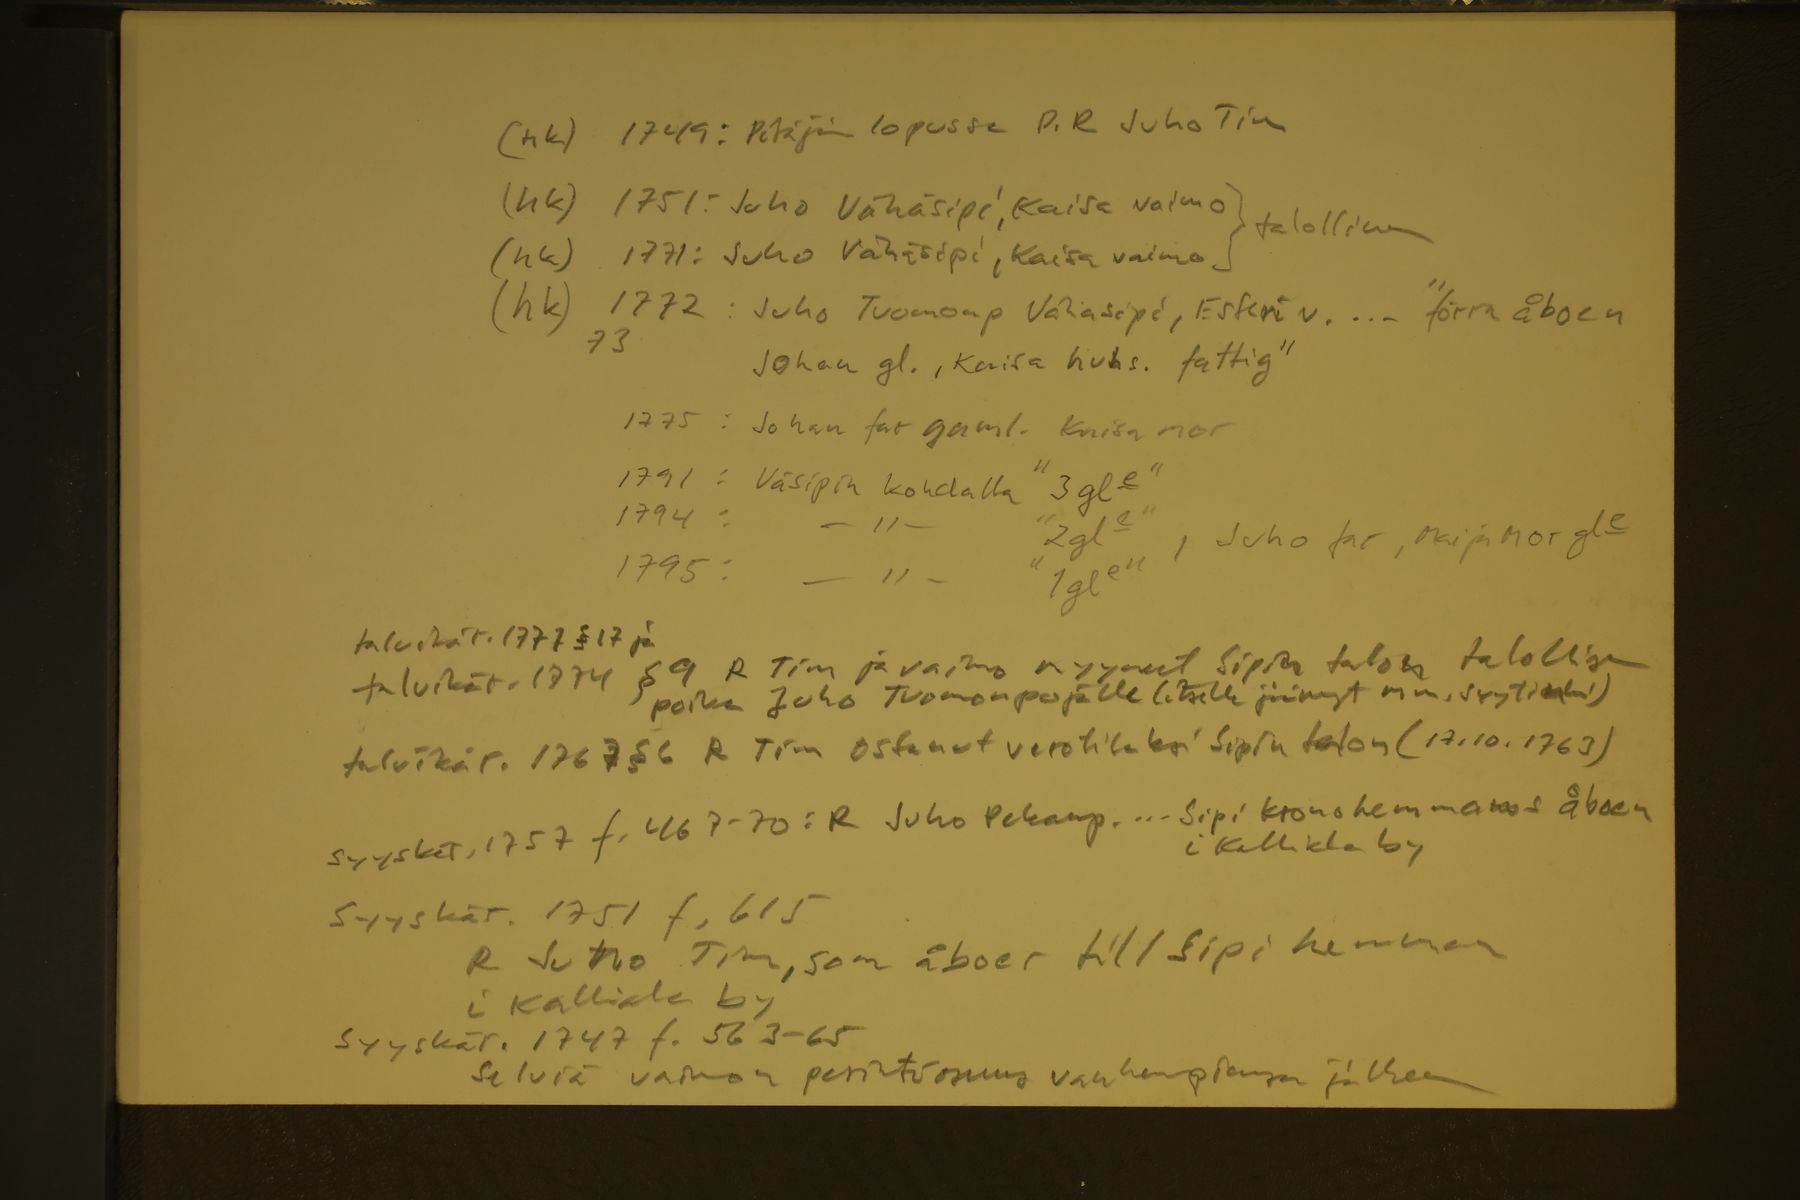 (hk) 1749: Pitäjän lopussa P.R Juho Tim
(hk) 1751: Juho Vähäsipi, Kaisa vaimo } talollinen
(hk) 1771: Juho Vähäsipi, Kaisa vaimo
(hk) 1772 : Juho Tuomonp Vähäsipi, Esteri v. ... "förra åboen
73 Johan gl., Kaisa huhs. fattig"
1775 : Johan far gaml. Kaisa mor
1791 : Väsipin kohdalla "3 gle"
1794 : — " — "2 gle", Juho far, Maija mor gle
1795 : — " — "1 gle"
talvikär. 1777 § 17 ja
talvikär. 1774 § 9 R Tim ja vaimo myyneet Sipin talon talollisen
poika Juho Tuomonpojalle (itselle jäänyt m.m. syytinki)
talvikär. 1767 § 6 R Tim ostanut verotilaksi Sipin talon (17.10.1763)
syyskär. 1757 f. 467-70: R Juho Pekanp. ... Sipi kronohemmans åboen
i Kalliala by
Syyskär. 1751 f. 615
R Juho Tim, som åboer till Sipi hemman
i Kalliala by
Syyskär. 1747 f. 563-65
Selviä vaimon perintöosuus vanhempiensa jälkeen